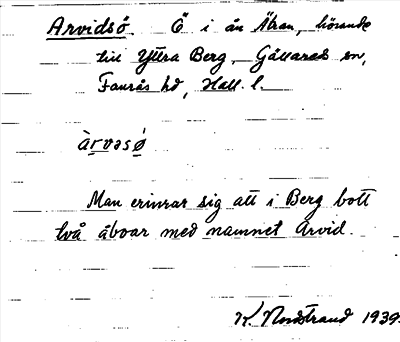 Arvidsö. Ö i ån Ätran, hörande
till Yttra Berg, Gällareds sn,
Faurås hd, Hall. l.
àrvəsǿ
Man erinrar sig att i Berg bott
två åboar med namnet Arvid.
K. Nordstrand 1939.